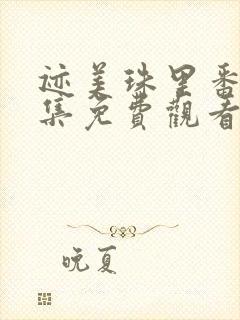 迹美珠里番
集免費觀看
晚夏